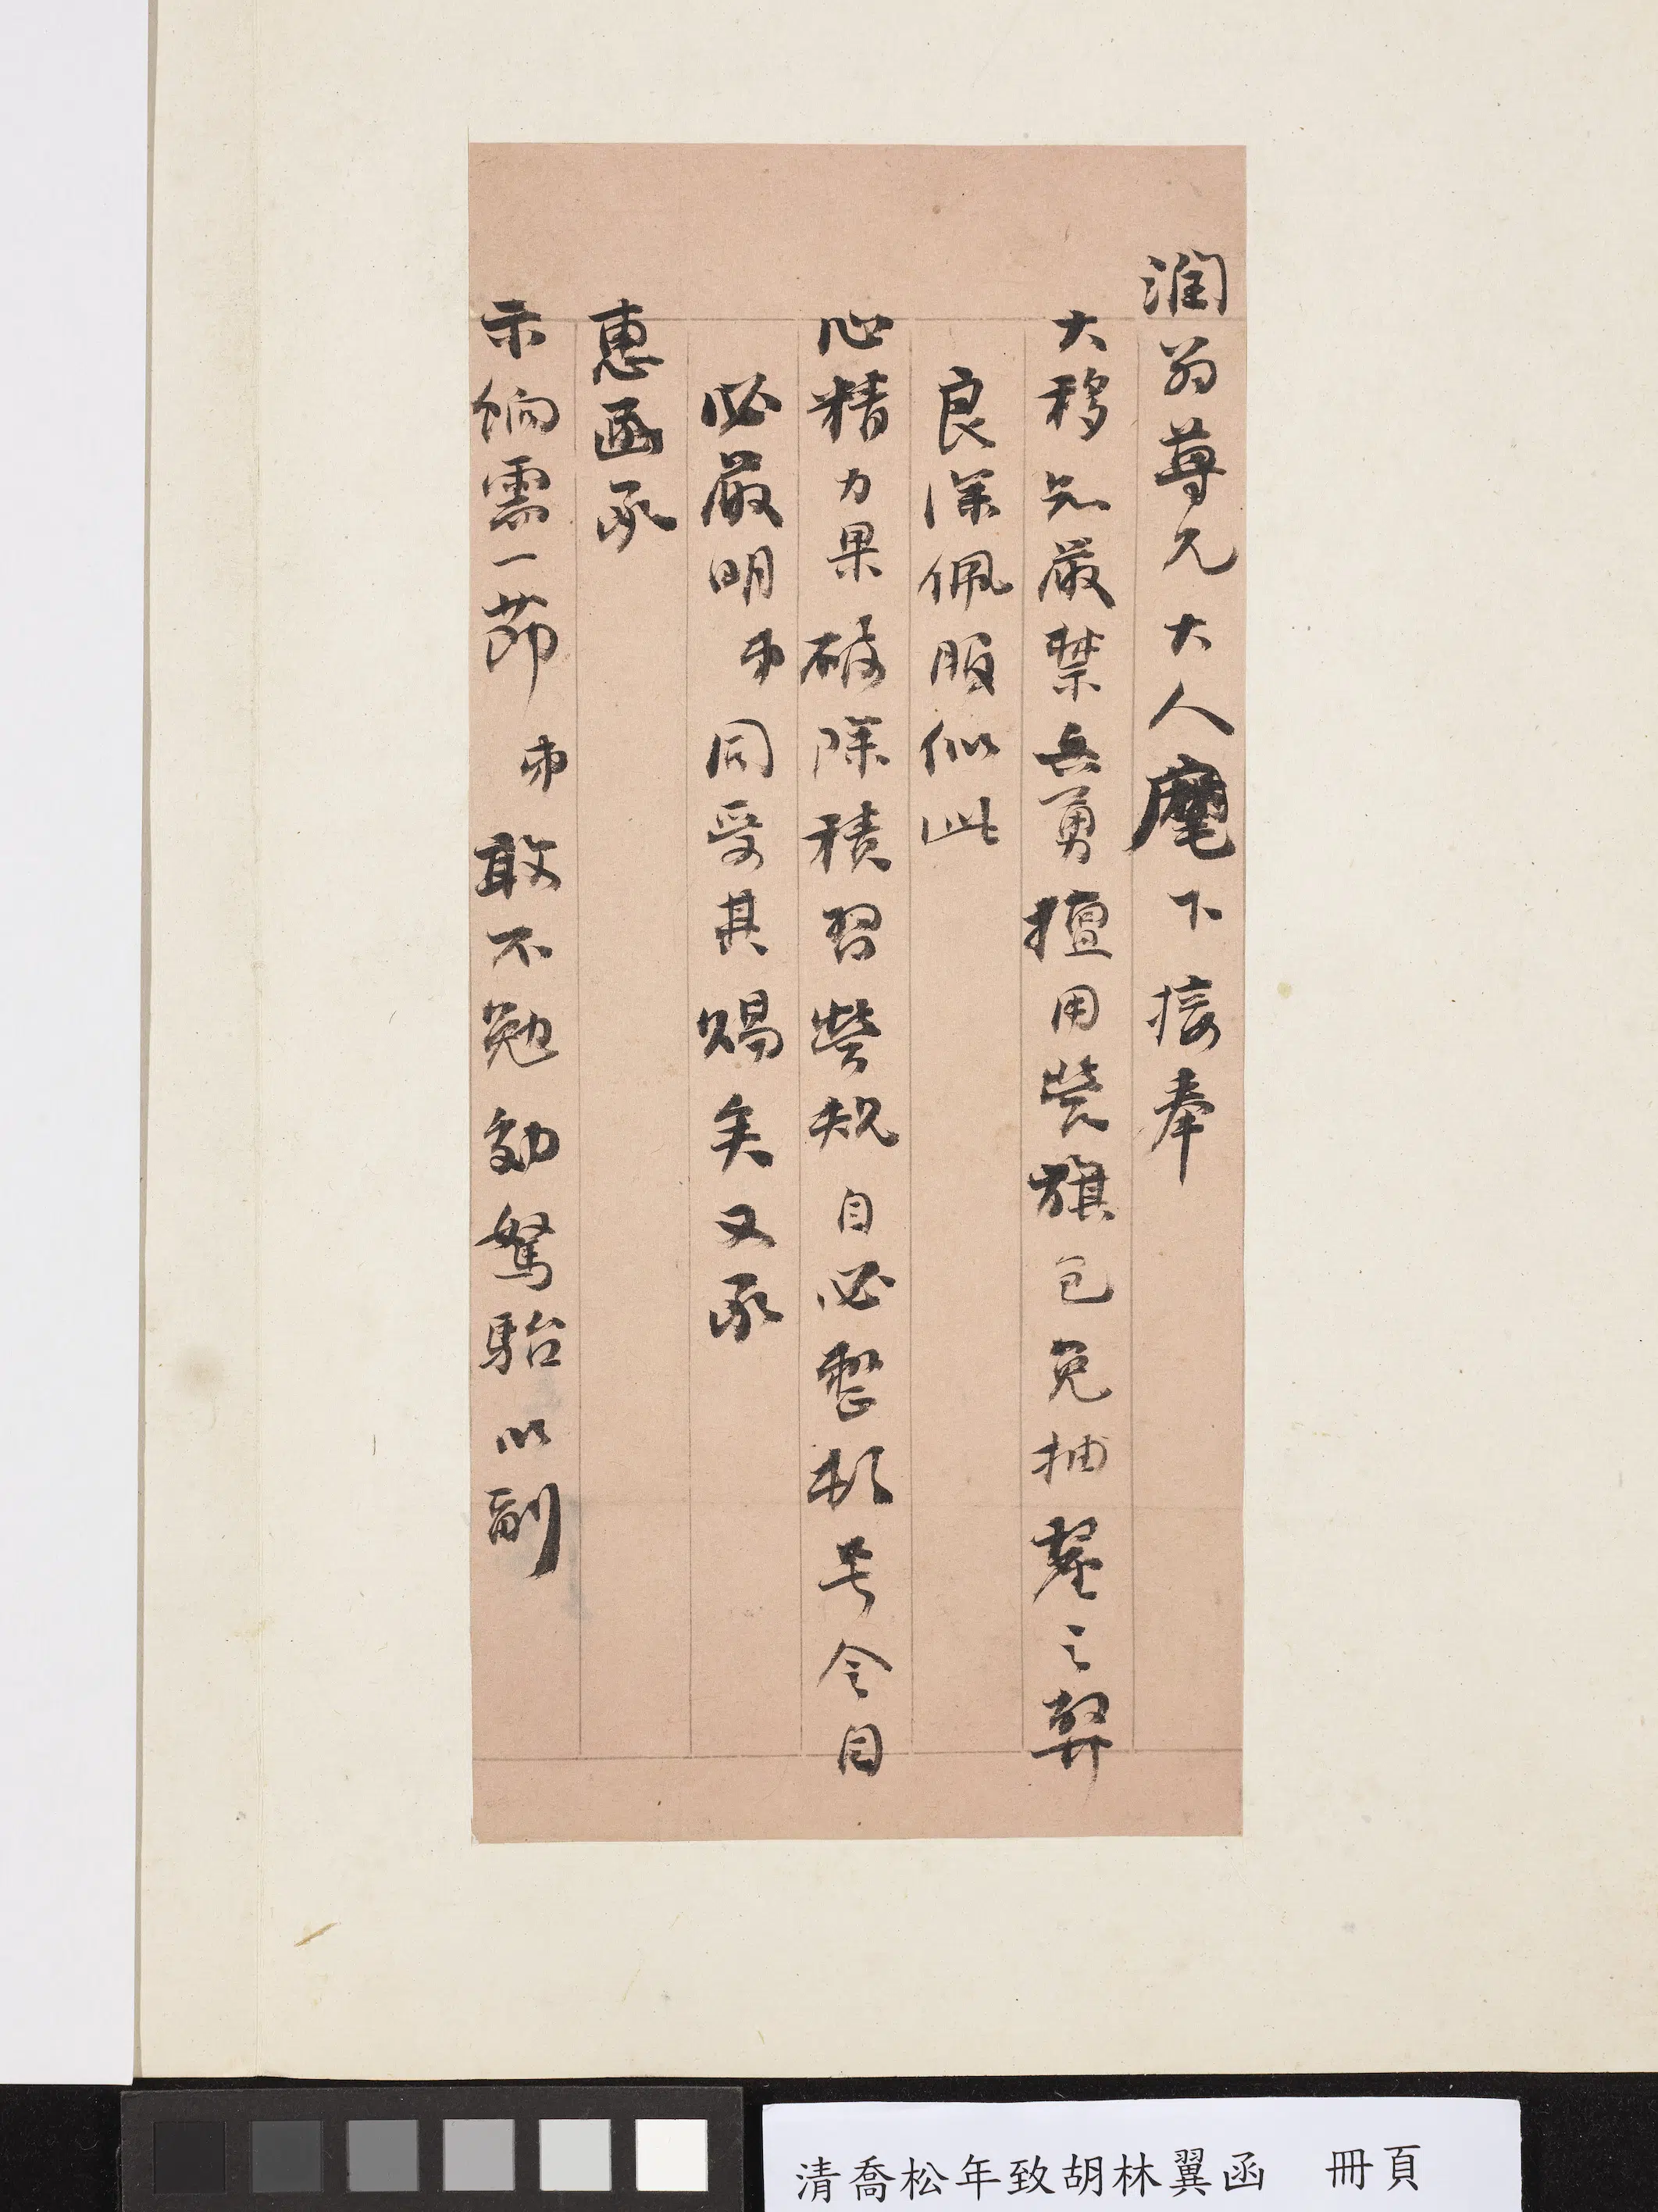 潤翁尊兄大人麾下接奉
大移知嚴禁兵勇擅用營旗包免抽釐之弊
良深佩服似此
心精力果破除積習營規自必整肅號令自
必嚴明弟同受其賜矣又承
惠函承
示餉需一節弟敢不勉效駑駘以副
清喬松年致胡林翼函 冊頁